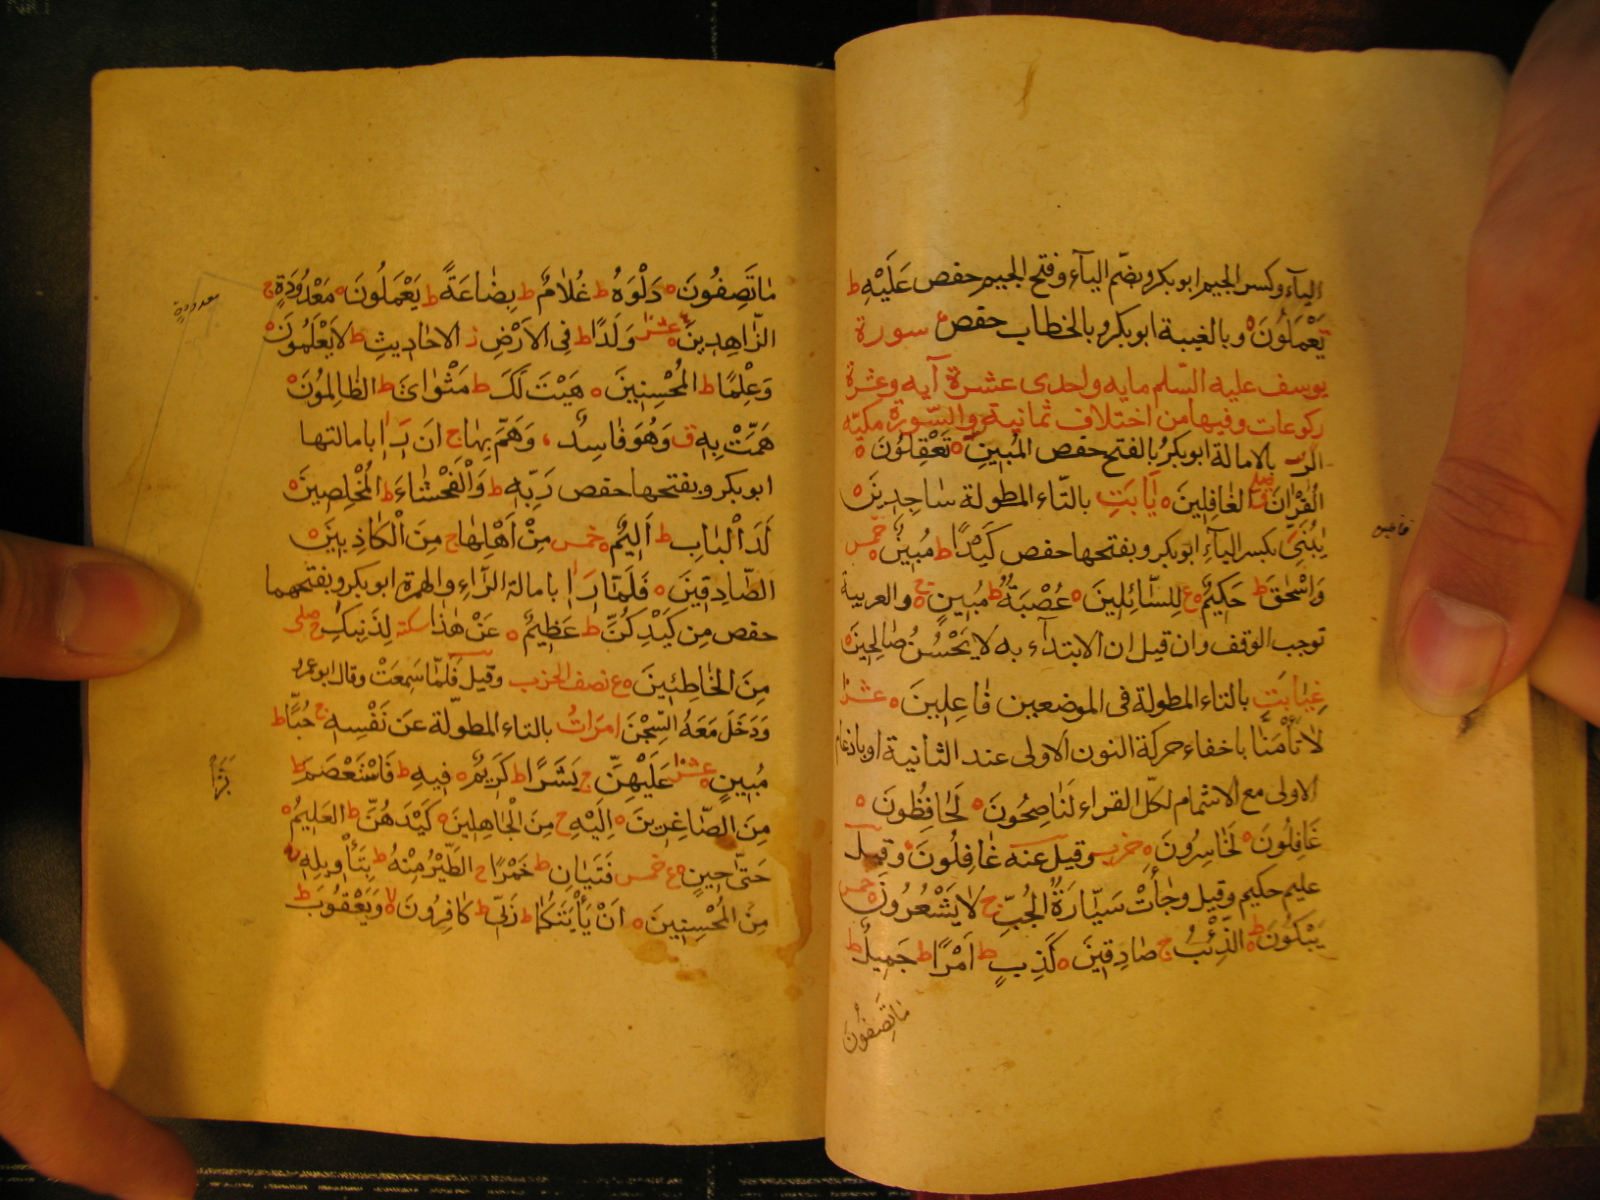 اليآء وكسر الجيم ابو بكر وبضّم اليآء وفتح الجيم حفص عَلَيْهِ ط
تَعْمَلُونَ ه وبالغيبة ابو بكر وبالخطاب حفص سورة
يوسف عليه السّلم مايه واحدى عشرة آيه وعشرة
ركوعات وفيها من اختلاف ثمانية والسّورة مكيّه
الر بالامالة ابو بكر بالفتح حفص المُبِينِ ه تَعْقِلُونَ ه
القُرْاٰنَ الغَافِلِينَ ه يَٓا بَتِ بالتّاء المطولة سَاجِدِينَ ه
يٰبُنَىَّ بكسر اليآءِ ابو بكر وبفتحها حفص كَيْدًا ط مُبِينٌ ه خمس
وَاِسْحٰقَ ط حَكِيمٌ ع لِلسَّائِلِينَ ه عُصْبَةٌ ط مُبِينٍ ه ج والعربية
توجب الوقف وان قيل ان الابتدآء به لا يَحْسُنُ صَالِحِينَ ه
غِيَابَتِ بالتاء المطولة فى الموضعين فَاعِلِينَ ه عشر
لَا تَأْمَنَّا باخفاء حركة النون الاولى عند الثانية او بادغام
الاولى مع الاشمام لكلّ القراء لَنَاصِحُونَ ه لَحَافِظُونَ ه
غَافِلُونَ ه لَخَاسِرُونَ ه وقيل عنه غَافِلُونَ ه وقيل
عليم حكيم وقيل وجَاۤءَتْ سَيَّارَةٌ الجُبِّ ج لَا يَشْعُرُونَ ه خمس
يَبْكُونَ ط الذِّئْبُ ج صَادِقِينَ ه كَذِبٍ ط اَمْرًا ط جَمِيلٌ ط
مَا تَصِفُونَ
مَا تَصِفُونَ ه دَلْوَهُ ط غُلَامٌ ط بِضَاعَةً ط يَعْمَلُونَ ه مَعْدُودَةٍ ج
معدودة
الزَّاهِدِينَ ه عشر وَلَدًا ط فِى الاَرْضِ ز الاحَادِيثِ ط لَا يَعْلَمُونَ ه
وَعِلْمًا ط المُحْسِنِينَ ه هَيْتَ لَكَ ط مَثْوَاىَ ط الظَّالِمُونَ ه
هَمَّتْ بِهِ ق وَهُوَ فَاسِدٌ ، وَهَمَّ بِهَا ج اَنْ رَاٰ بامالتها
ابو بكر وبفتحها حفص رَبِّهِ ط وَالْفَحْشَاءَ ط المُخْلَصِينَ ه
لَدَا الْبَابِ ط اَلِيمٌ ه خمس مِنْ اَهْلِهَا ج مِنَ الْكَاذِبِينَ ه
الصَّادِقِينَ ه فَلَمَّا رَاٰ بامالة الرّاء والهمزة ابو بكر وبفتحهما
حفص مِن كَيْدِكُنَّ ط عَظِيمٌ ه عَنْ هٰذَا سكته لِذَنْبِكِ صلى
مِنَ الخَاطِئِينَ ه ع نصف الحزب وقيل فَلَمَّا سَمِعَتْ وقال ابو عمرو
وَدَخَلَ مَعَهُ السِّجْنَ امْرَاَتُ بالتاء المطوّلة عَن نَفْسِهِ ج حُبًّا ط
مُبِينٍ ه عشر عَلَيْهِنَّ ج بَشَرًا ط كَرِيمٌ ه فِيهِ ط فَاسْتَعْصَمَ ط
مِنَ الصَّاغِرِينَ ه اِلَيْهِ ج مِنَ الْجَاهِلِينَ ه كَيْدَهُنَّ ط العَلِيمُ ه
حَتَّى حِينٍ ه ع خمس فَتَيَانِ ط خَمْرًا ج الطَّيْرُ مِنْهُ ط بِتَأْوِيلِهِ ج
مِنَ المُحْسِنِينَ ه اَنْ يَأْتِيَكُمَا ط رَبِّى ط كَافِرُونَ ه لا وَيَعْقُوبَ ط